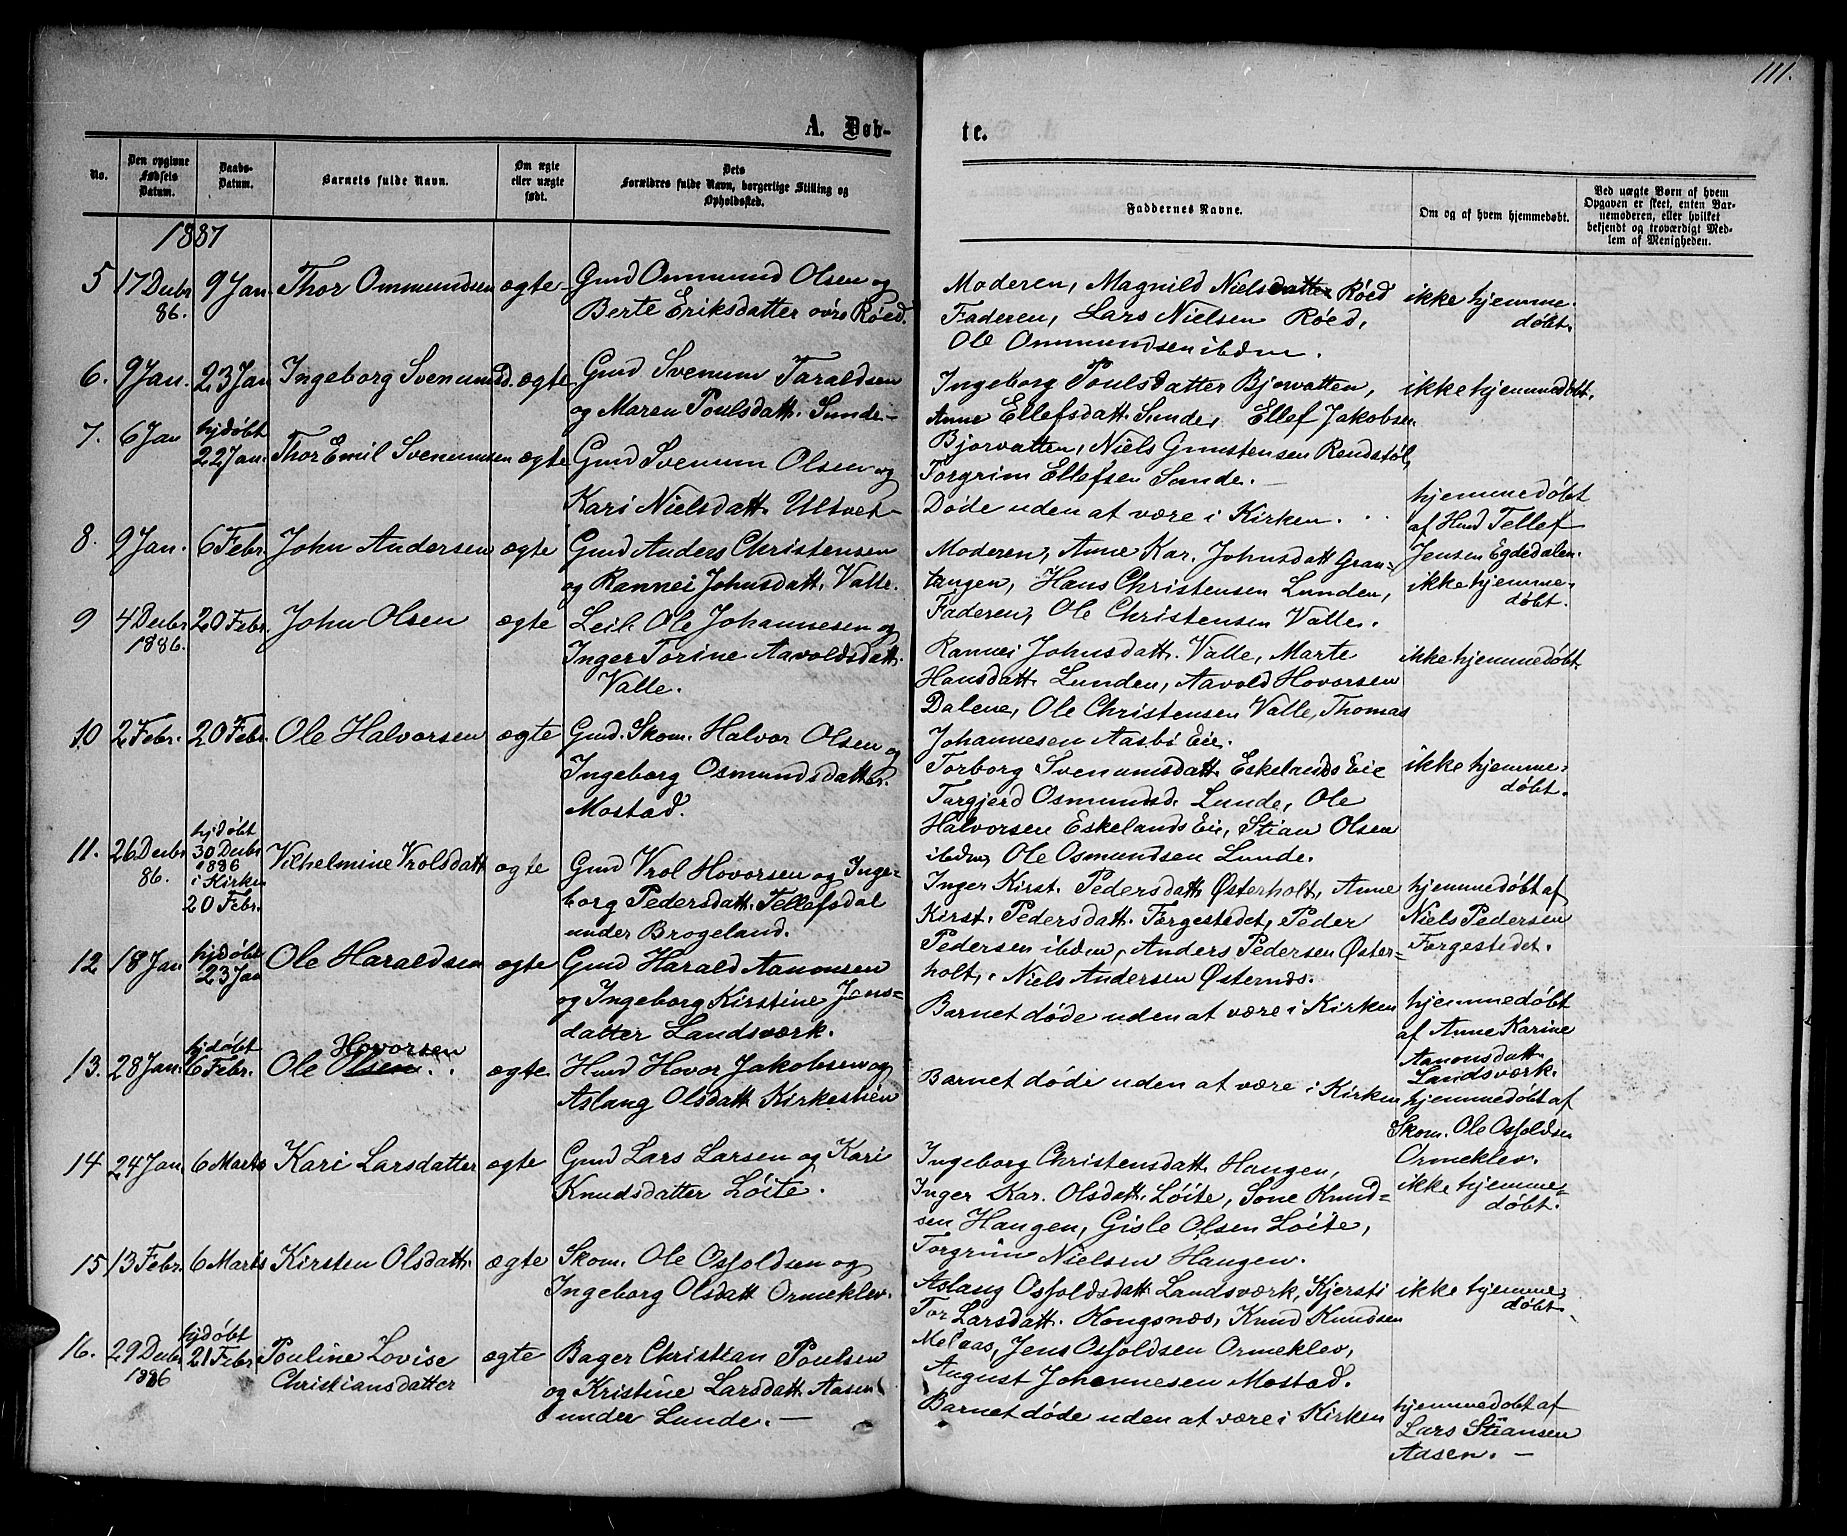 111.
A. Døb-
te.
No.
Den opgivne
Fødsels
Datum.
Daabs-
Datum.
Barnets fulde Navn.
Om ægte
eller uægte
født.
Dets
Forældres fulde Navn, borgerlige Stilling og
Opholdssted.
Faddernes Navne.
Om og af hvem hjemmedøbt.
Ved uægte Børn af hvem
Opgaven er skeet, enten Bar-
nemoderen, eller hvilket
bekjendt og troværdigt Med-
lem af Menigheden.
1887
5 17 Decbr 9 Jan. Thor Ommundsen ægte- Gmd Ommund Olsen og
86. Berte Eriksdatter øvre Røed.
Moderen, Magnild Nielsdatter Røed
Faderen, Lars Nielsen Røed,
Ole Ommundsen ibdm.
ikke hjemme-
døbt.
6. 9 Jan. 23 Jan Ingeborg Svenumsd. ægte Gmd Svenum Taraldsen
og Maren Poulsdatt. Sunde-
Ingeborg Poulsdatter Bjorvatten,
Anne Ellefsdatt. Sunde, Ellef Jakobsen
Bjorvatten, Niels Gunstensen Rendstøl,
Torgrim Ellefsen Sunde.
ikke hjemmedøbt.
7. 6 Jan hjdøbt
22 Jan. Thor Emil Svenumsen ægte Gmd Svenum Olsen og
Kari Nielsdatt. Ulltvet-
Døde uden at være i Kirken.
hjemmedøbt
af Hmd Tellef
Jensen Egdedalen.
8. 9 Jan. 6 Febr. John Andersen ægte Gmd Anders Christensen
og Rannei Johnsdatt. Valle.
Moderen, Anne Kar. Johnsdatt Gran-
tangen, Hans Christensen Lunden,
Faderen, Ole Christensen Valle.
ikke hjemme-
døbt.
9 4 Decbr 20 Febr. John Olsen ægte Leil. Ole Johannesen og
1886. Inger Torine Aavoldsdatt.
Valle.
Rannei Johnsdatt. Valle, Marte
Hansdatt. Lunden, Aavold Hovorsen
Dalene, Ole Christensen Valle, Thomas
Johannesen Aasbø Eie.
ikke hjemmedøbt.
10 2 Febr. 20 Febr. Ole Halvorsen ægte Gmd. Skom. Halvor Olsen og
Ingeborg Osmundsdatter
Mostad.
Torborg Svenumsdatt. Eskelands Eie
Torgjerd Osmundsd. Lunde, Ole
Halvorsen Eskelands Eie, Stian Olsen
ibdm, Ole Osmundsen Lunde.
ikke hjemme-
døbt.
11. 26 Decbr hjdøbt
86. 30 Decbr
1886
i Kirken
20 Febr. Vilhelmine Vrolsdatt ægte Gmd Vrol Hovorsen og Inge-
borg Pedersdatt. Tellefsdal
under Brogeland.
Inger Kirst. Pedersdatt. Østerholt, Anne
Kirst. Pedersdatt. Torgestedet, Peder
Pedersen ibdm, Anders Pedersen Øster-
holt, Niels Andersen Østernds.
hjemmedøbt af
Niels Pedersen
Torgestedet.
12 18 Jan hjdøbt
23 Jan Ole Haraldsen ægte Gmd Harald Aanonsen
og Ingeborg Kirstine Jens-
datter Landsværk.
Barnet døde uden at være i Kirken
hjemmedøbt
af Anne Karine
Aanonsdatt.
Landsværk.
13. 28 Jan. hjdøbt
6 Febr. Hovorsen
Ole Olsen. ægte Hmd Hovor Jakobsen og
Aslaug Olsdatt. Kirkestien
Barnet døde uden at være i Kirken
hjemmedøbt af
Skom. Ole Osfoldsen
Ormeklev.
14 24 Jan 6 Marts Kari Larsdatter ægte Gmd Lars Larsen og Kari
Knudsdatter Løite.
Ingeborg Christensdatt. Haugen,
Inger Kar. Olsdatt. Løite, Sone Knud-
sen Haugen, Gisle Olsen Løite,
Torgrim Nielsen Haugen.
ikke hjemme-
døbt.
15 13 Febr. 6 Marts Kirsten Olsdatt. ægte Skom. Ole Osfoldsen og
Ingeborg Olsdatt Ormeklev.
Aslaug Osfoldsdatt. Landsværk, Kjersti
Tor Larsdatt. Kongsnæs, Knud Knudsen
Melaas, Jens Osfoldsen Ormeklev,
August Johannesen Mostad.
ikke hjemme-
døbt.
16. 29 Decbr hjdøbt
1886 21 Febr. Pouline Lovise
Christiansdatter ægte Bager Christian Poulsen
og Kristine Larsdatt. Aasen
under Lunde.
Barnet døde uden at være i Kirken
hjemmedøbt af
Lars Stiansen
Aasen.